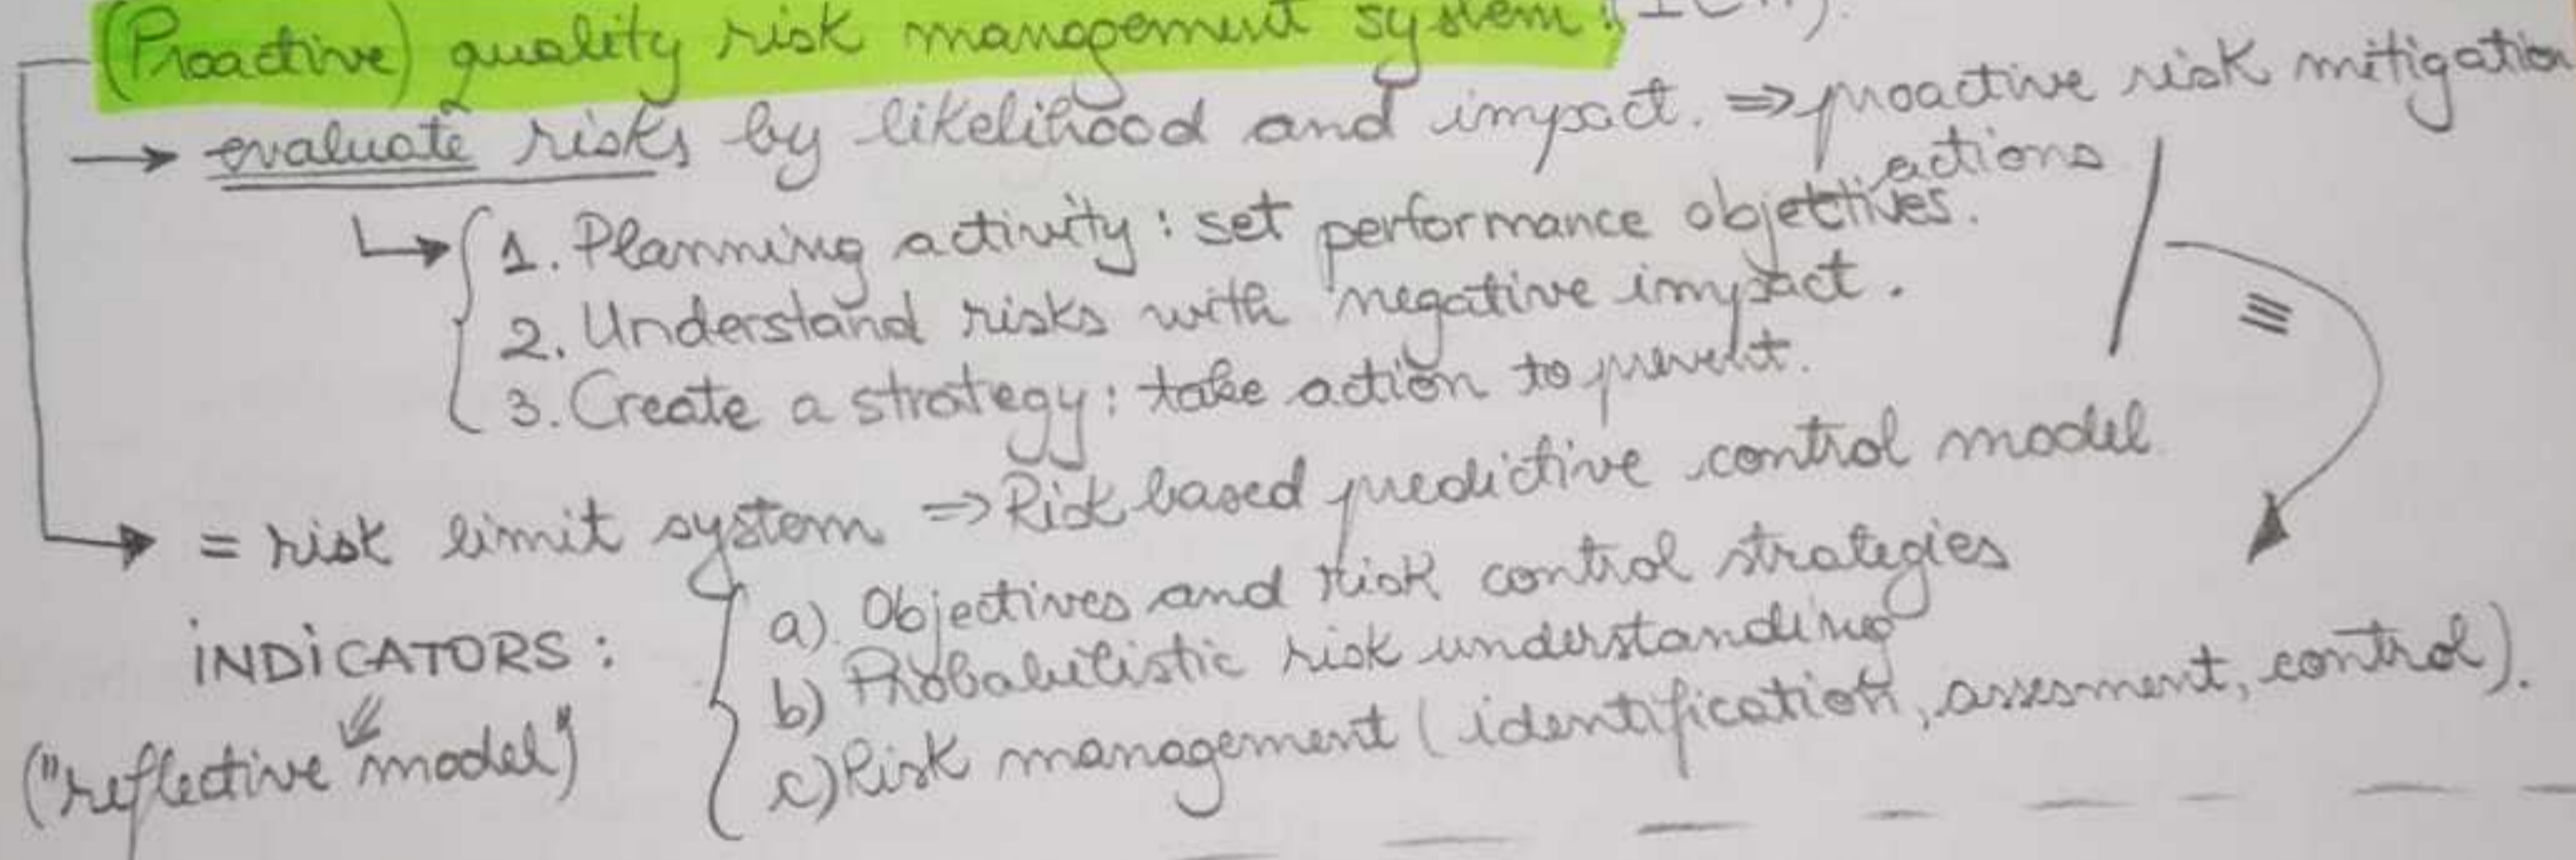 (Proactive) quality risk management system:
→ evaluate risks by likelihood and impact. ⇒ proactive risk mitigation
actions
1. Planning activity: set performance objectives.
2. Understand risks with negative impact.
3. Create a strategy: take action to prevent.
= risk limit system ⇒ Risk based predictive control model
a) Objectives and risk control strategies
INDICATORS:
b) Probabilistic risk understanding
("reflective model")
c) Risk management (identification, assesment, control).